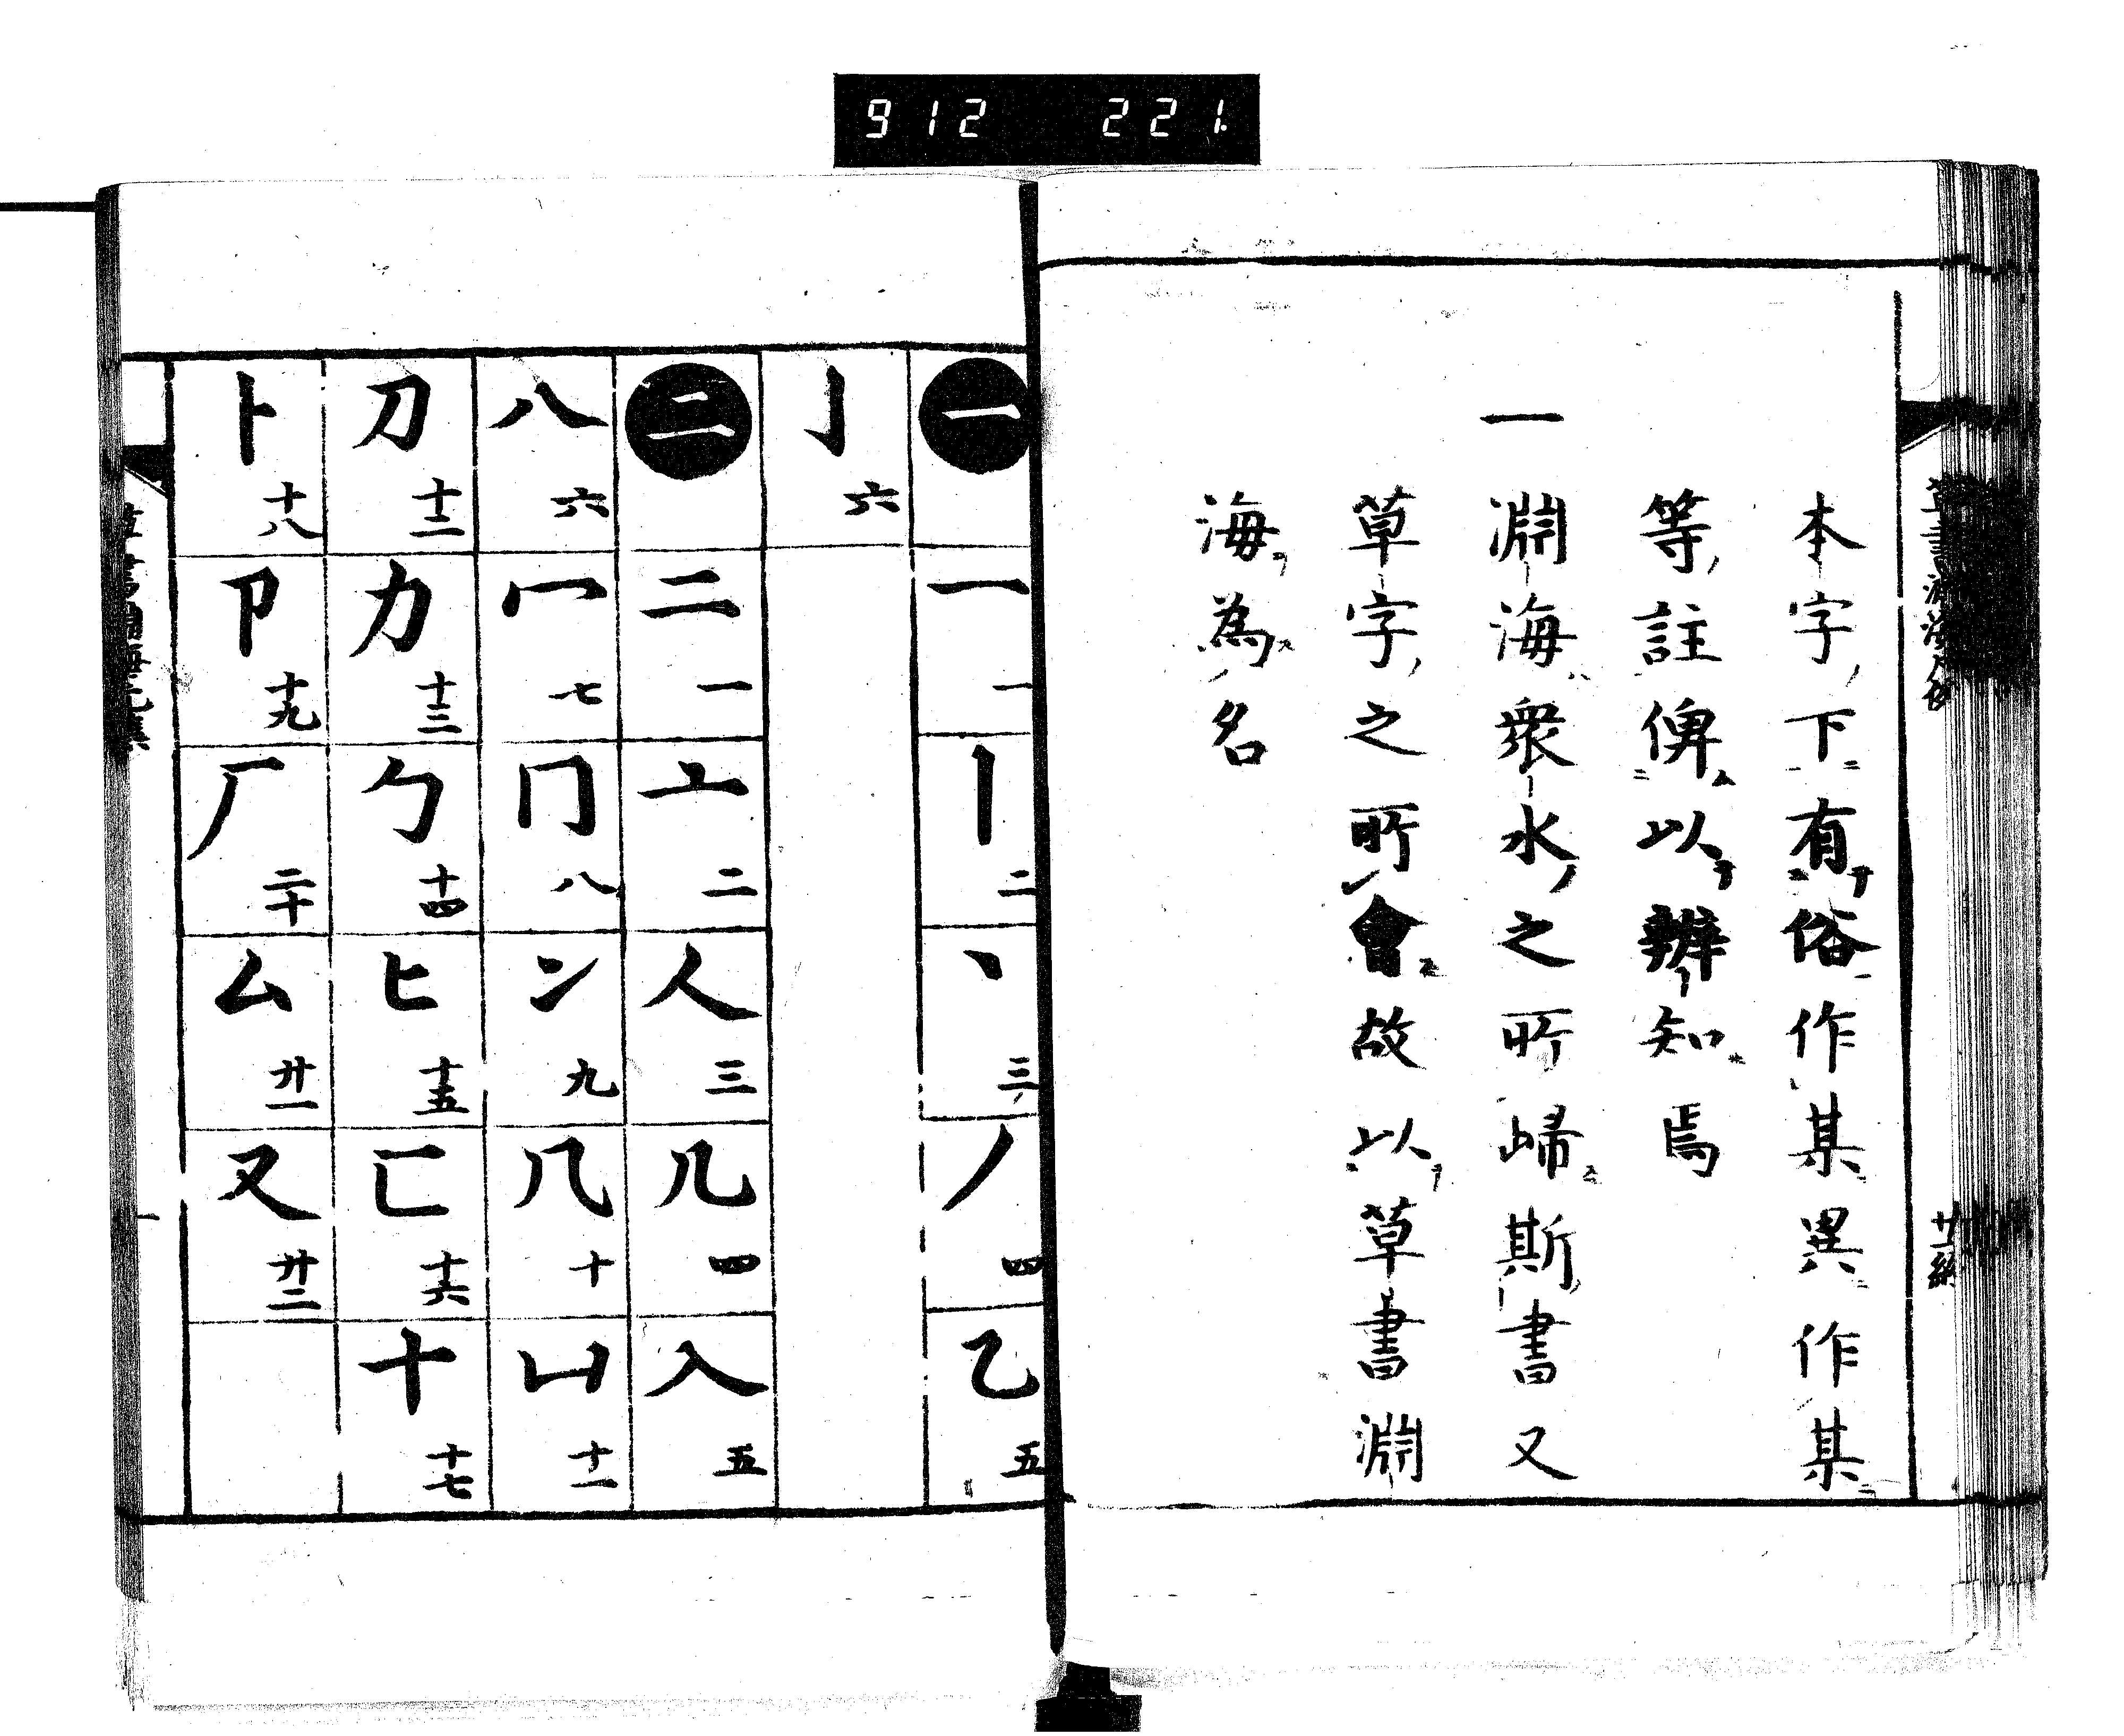 912 221.
本字下有俗作某異作某
等註俾以辨知焉
一淵海衆水之所歸斯書又
草字之所會故以草書淵
海為名
一
一 一
丨 二
丶 三
丿 四
乙 五
亅 六
二
二 一
亠 二
人 三
儿 四
入 五
八 六
冖 七
冂 八
冫 九
几 十
凵 十一
刀 十二
力 十三
勹 十四
匕 十五
匚 十六
十 十七
卜 十八
卩 十九
厂 二十
厶 廿一
又 廿二